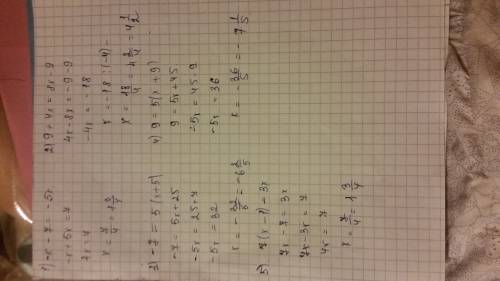 1) -x - 7 = -5x
-x + 5x = 7
4x = 7
x = 7/4 = 1 3/4
2) 9 + 4x = 8x - 9
4x - 8x = -9 - 9
-4x = -18
x = -18 : (-4)
x = 18/4 = 4 2/4 = 4 1/2
3) -7 = 5(x+5)
-7 = 5x + 25
-5x = 25 + 7
-5x = 32
x = -32/5 = -6 2/5
4) 9 = 5(x + 9)
9 = 5x + 45
-5x = 45 - 9
-5x = 36
x = -36/5 = -7 1/5
5) 7(x - 1) = 3x
7x - 7 = 3x
7x - 3x = 7
4x = 7
x = 7/4 = 1 3/4